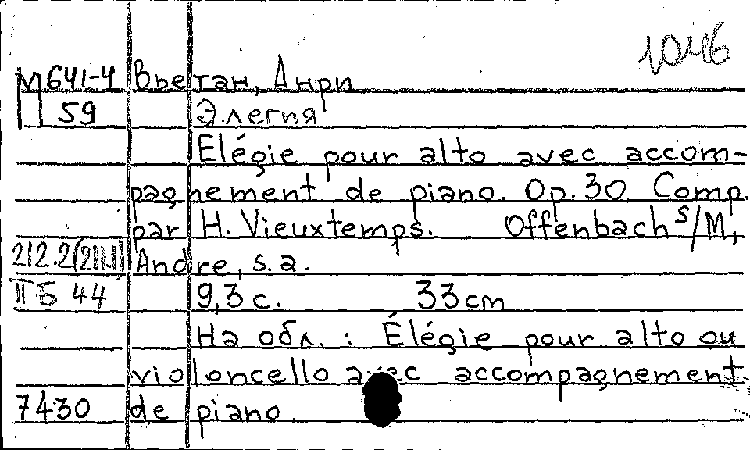 1046
М641-4 Вьетан, Анри
59 Элегия
Elégie pour alto avec accom-
pagnement de piano. Op.30 Comp.
par H. Vieuxtemps. Offenbach s/M,
Andre, s.a.
II Б 44 9,3 с. 33 cm
На обл. : Élégie pour alto ou
violoncello avec accompagnement
7430 de piano.